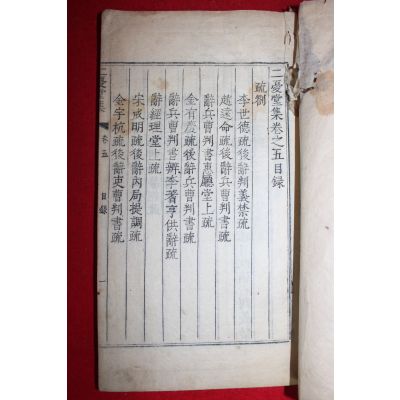 二憂堂集卷之五目録
疏劄
李世德疏後辭判義禁疏
趙遠命疏後辭兵曹判書疏
辭兵曹判書惠廳堂上疏
金有慶疏後辭兵曹判書疏
辭兵曹判書辨李蓍亨供辭疏
辭經理堂上疏
宋成明疏後辭內局提調疏
金宇杭疏後辭吏曹判書疏
二憂堂集
卷五
目録
一